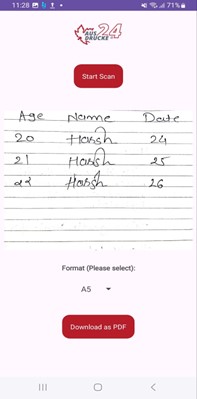 11:28 71%
AUS 24
DRUCKE
Start Scan
Age Name Date
20 Harsh 24
21 Harsh 25
22 Harsh 26
Format (Please select):
A5
Download as PDF